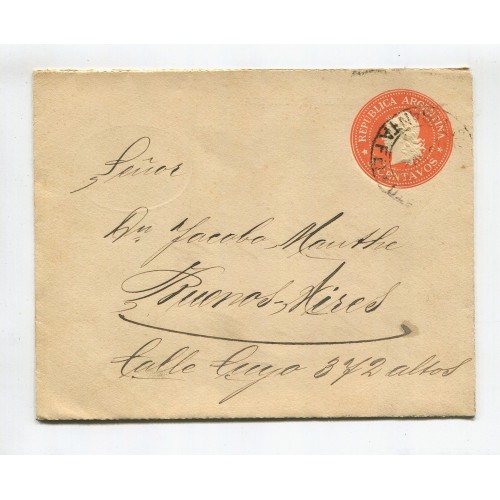 REPUBLICA ARGENTINA
CENTAVOS
SANTA FE
Señor
Dn Jacobo Manthe
Buenos-Aires
Calle Cuyo 372 altos